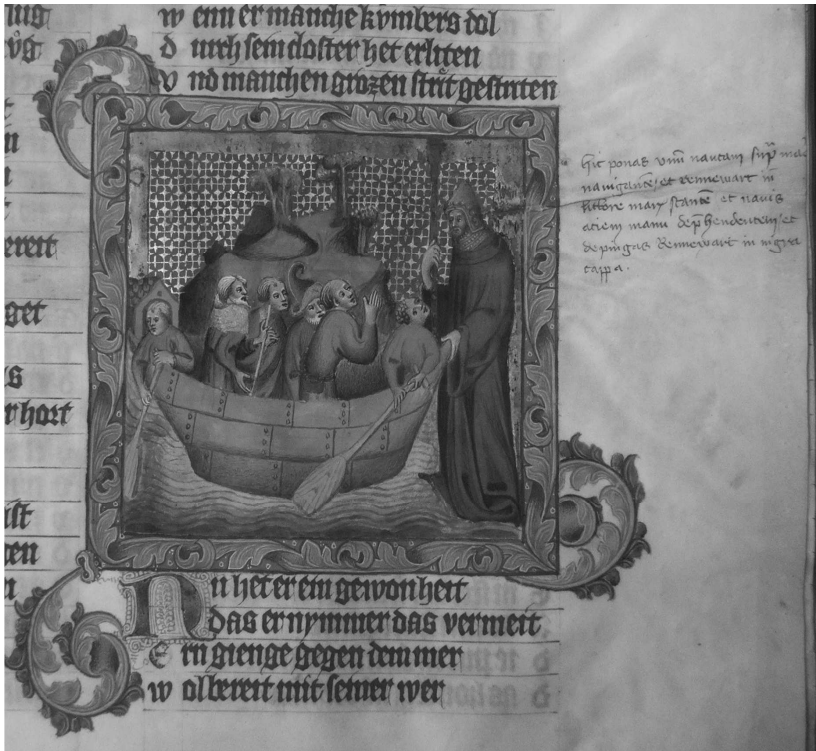 w enn er manche kvmbers dol
d urch sein closter het erliten
v nd manchen grozen strit gestriten
ereit
get
s
hort
ist
en
n
Hic ponas vnū nautam
nauigantē et rennewart in
littore maris stantē et nauis
aciem manu dep̄hendentem et
depingas Rennewart in nigra
cappa .
N u het er ein gewonheit
das er nymmer das vermeit
E rn gienge gegen dem mer
w ol bereit mit seiner wer